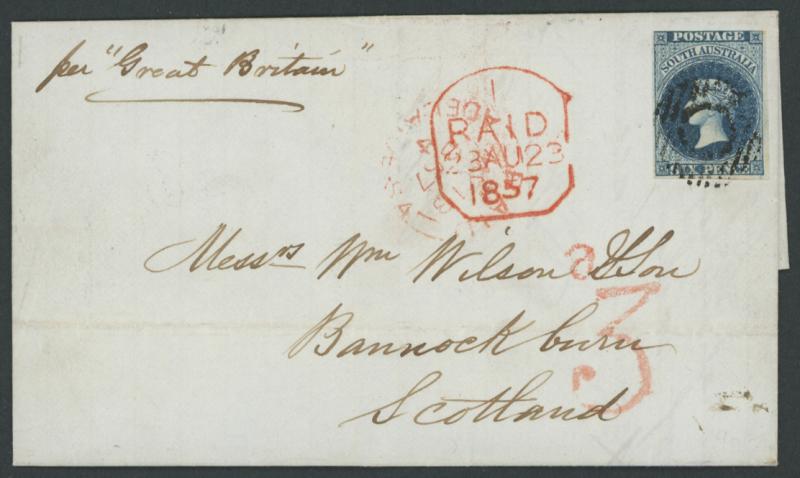 per "Great Britain"
POSTAGE
SOUTH AUSTRALIA
SIX PENCE
1
PAID
23AU23
1857
Messrs Wm Wilson & Son
a
3
Bannockburn
Scotland